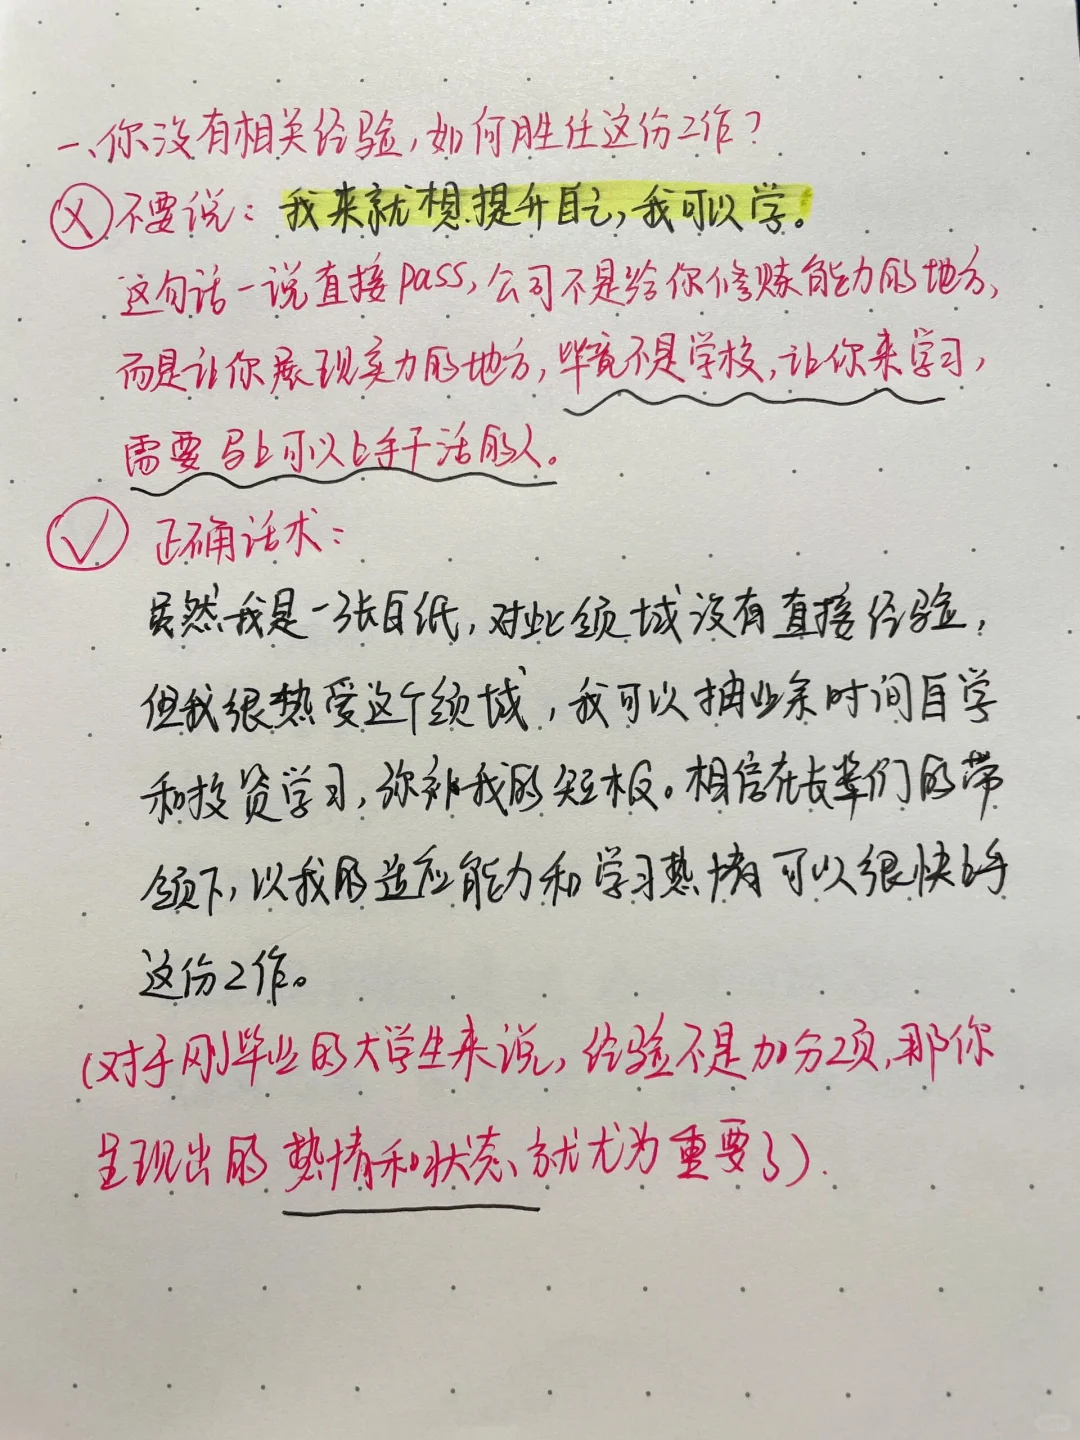 一、你没有相关经验,如何胜任这份工作?
X 不要说: 我来就想提升自己,我可以学。
这句话一说直接pass,公司不是给你修炼能力的地方,
而是让你展现实力的地方,毕竟不是学校,让你来学习,
需要马上可以上手干活的人。
✓ 正确话术:
虽然我是一张白纸,对此领域没有直接经验,
但我很热爱这个领域,我可以抽业余时间自学
和投资学习,弥补我的短板。相信在长辈们的带
领下,以我的适应能力和学习热情可以很快上手
这份工作。
(对于刚毕业的大学生来说,经验不是加分项,那你
呈现出的热情和状态就尤为重要了).